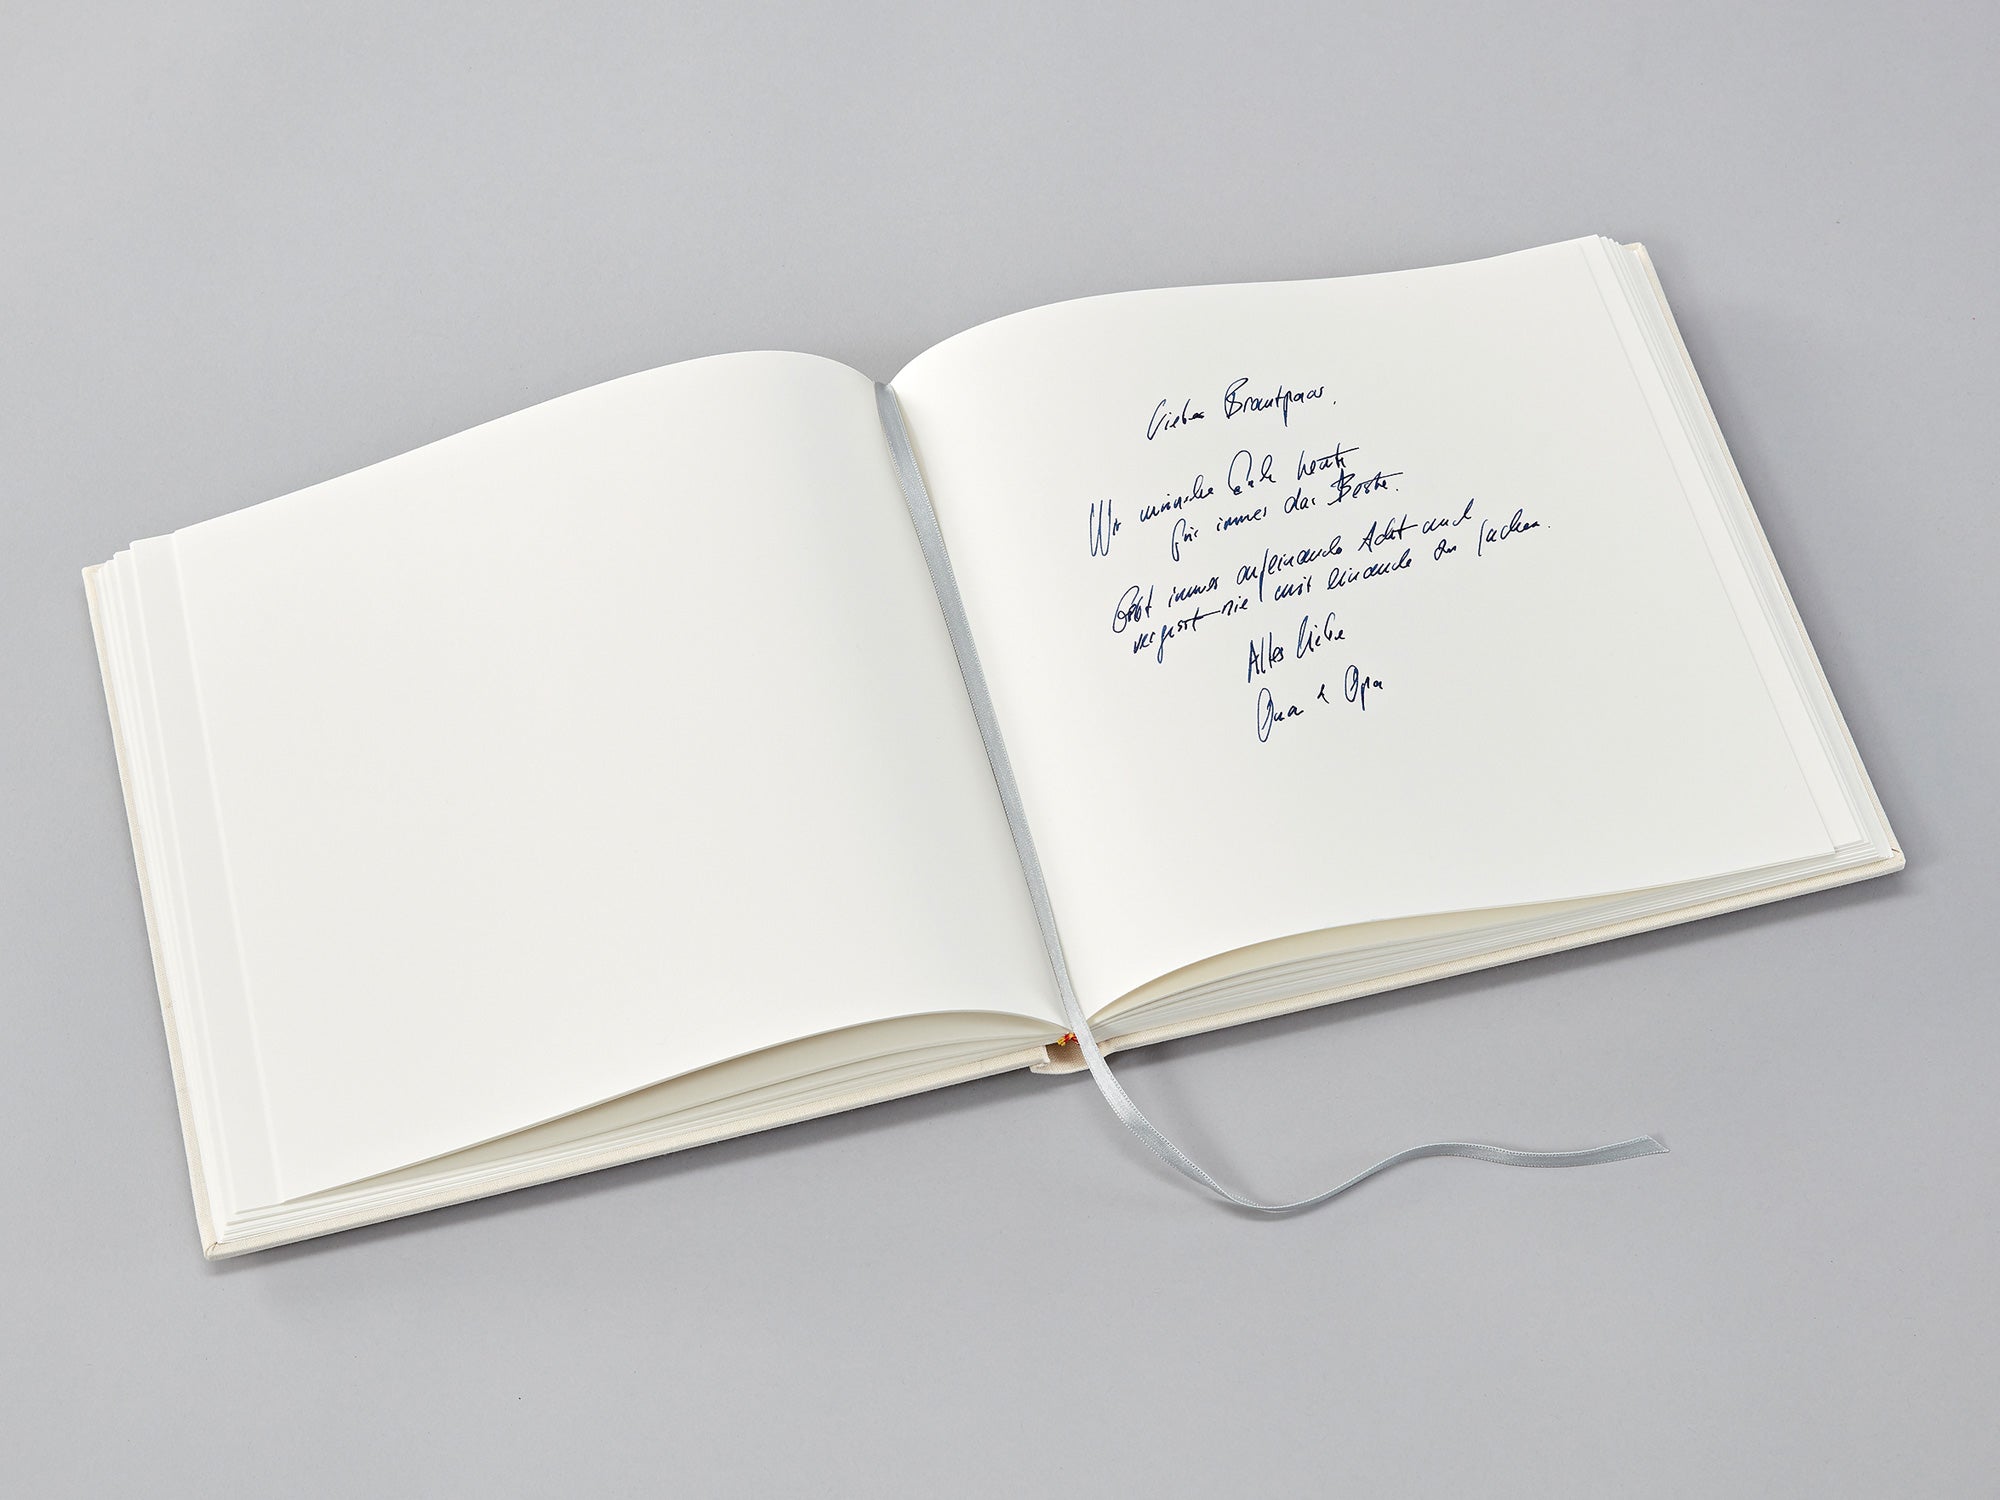 Liebes Brautpaar,
Wir wünschen Euch heute
für immer das Beste.
Gebt immer aufeinander Acht und
vergesst nie mit einander zu lachen.
Alles Liebe
Oma & Opa